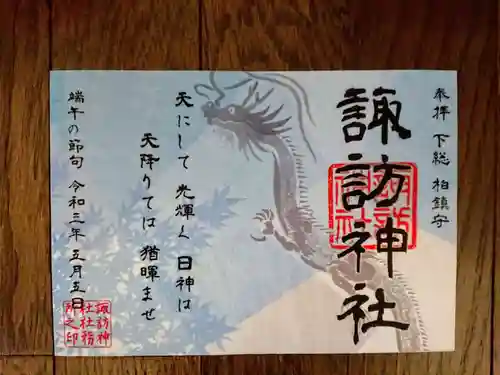 参拝 下総 柏鎮守
諏訪神社
天にして 光輝く 日神は
天降りては 猶暉ませ
端午の節句 令和三年 五月五日
諏訪神社
諏訪神
社社務
所之印